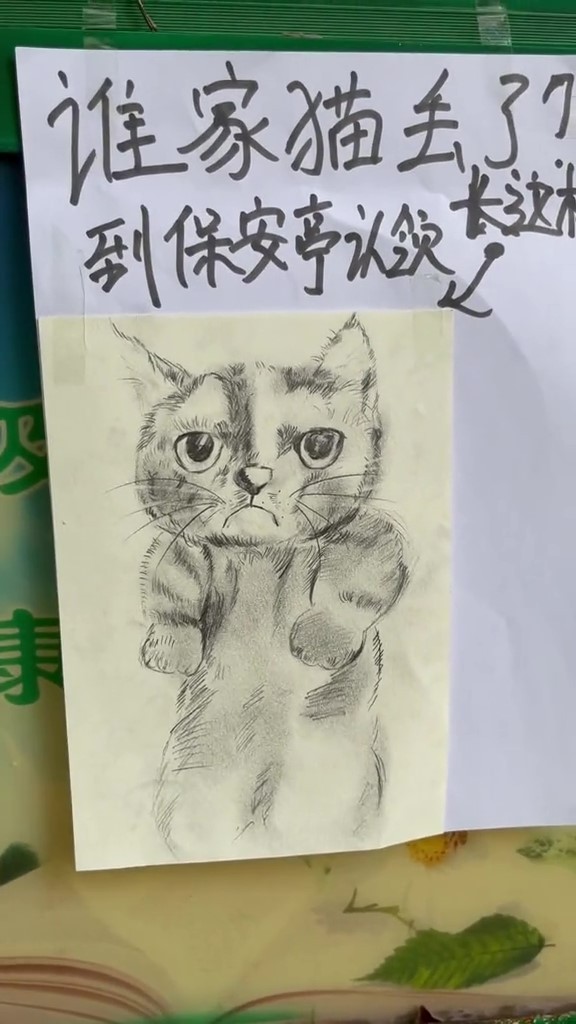 谁家猫丢了?
到保安亭认领
长这样
康